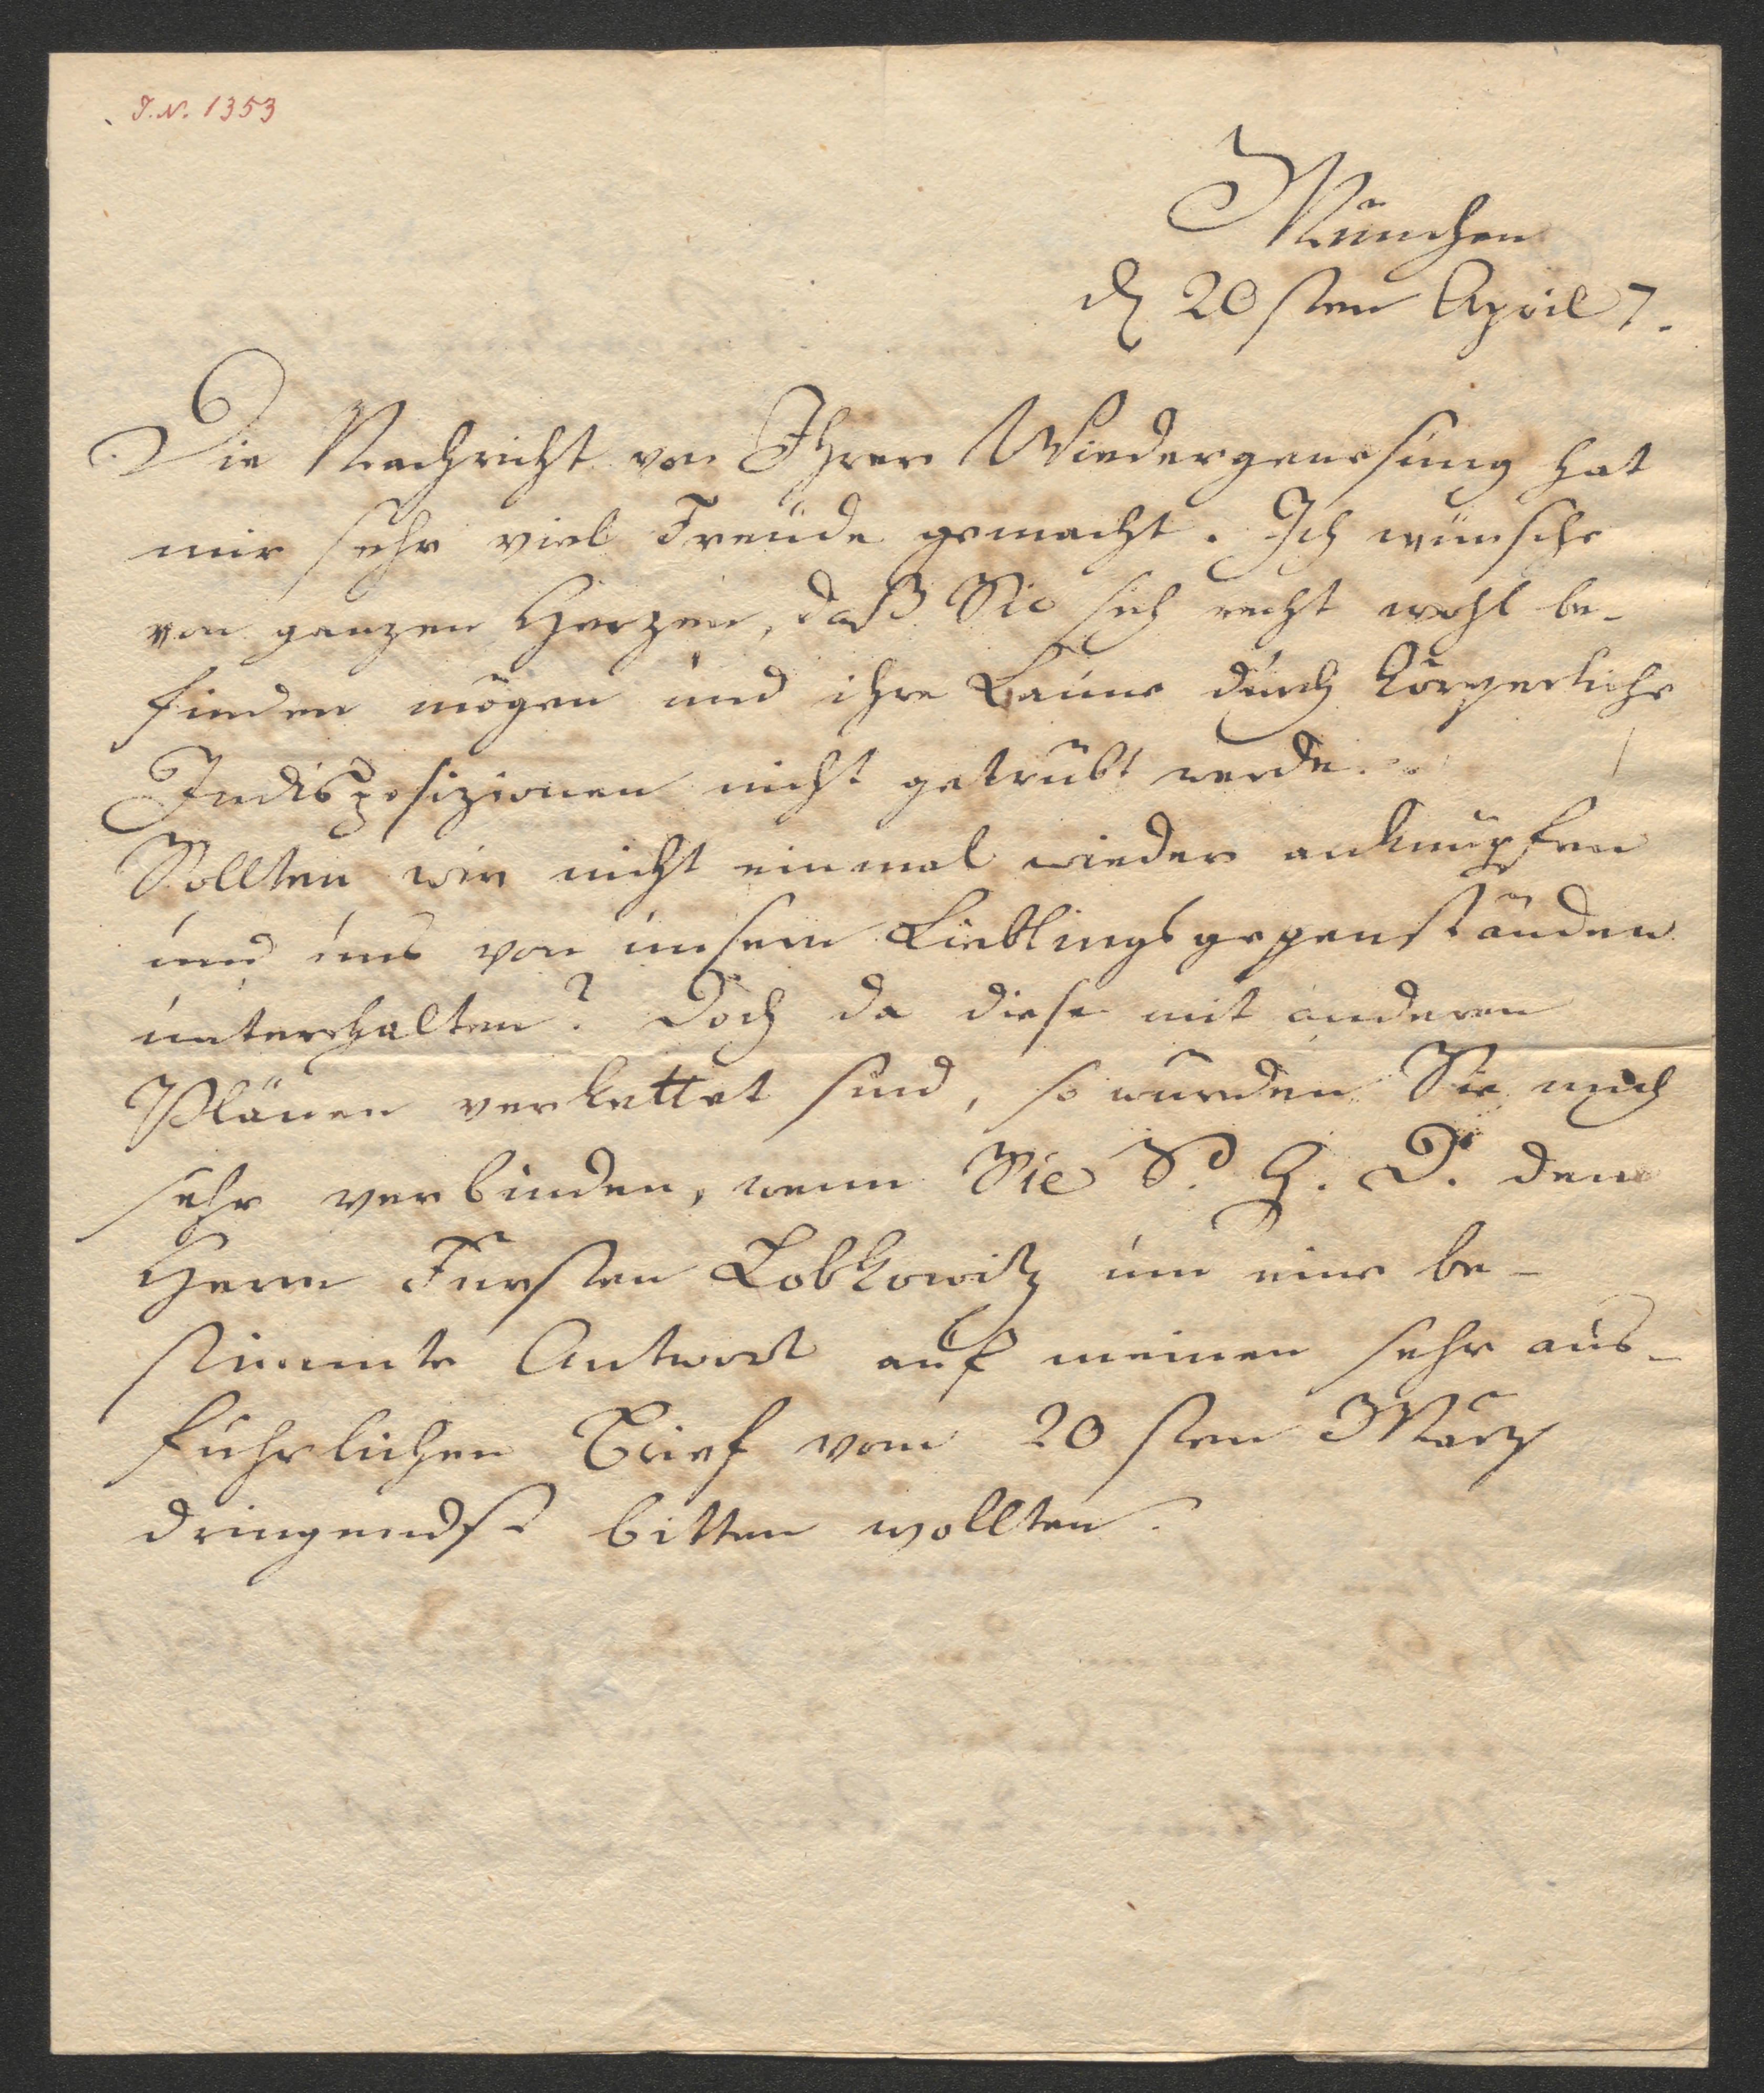 J.N. 1353
München
d 20sten April 7.
Die Nachricht von Ihrer Wiedergenesung hat
mir sehr viel Freude gemacht. Ich wünsche
von ganzen Herzen, daß Sie sich recht wohl be-
finden mögen und ihre Laune durch körperliche
Indisposizionen nicht getrübt werde.
Sollten wir nicht einmal wieder anknüpfen
und uns von unsern Lieblingsgegenständen
unterhalten? Doch da diese mit anderen
Plänen verkettet sind, so würden Sie mich
sehr verbinden, wenn Sie S. H. D. den
Herrn Fürsten Lobkowitz um eine be-
stimmte Antwort auf meinen sehr aus-
führlichen Brief vom 20sten März
dringendst bitten wollten.